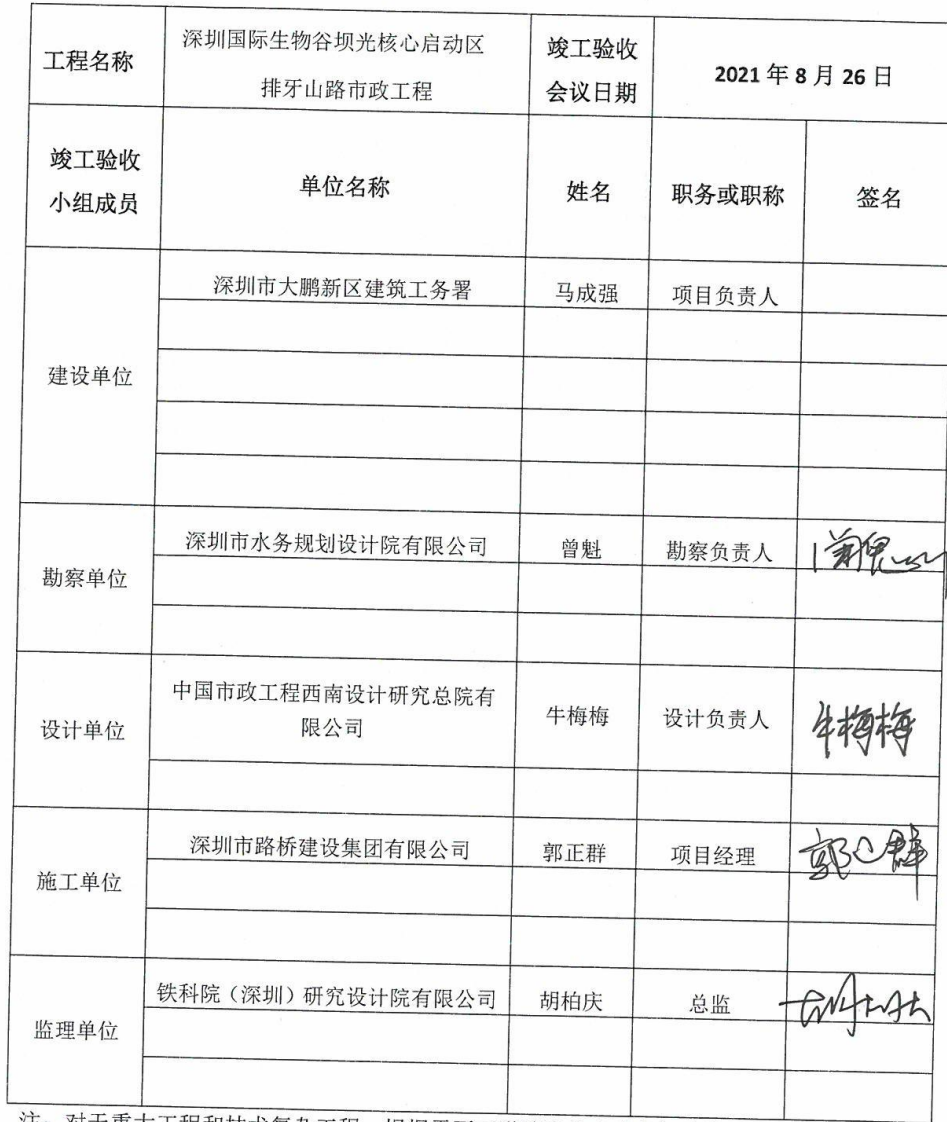 工程名称 深圳国际生物谷坝光核心启动区 竣工验收 2021 年 8 月 26 日
排牙山路市政工程 会议日期
竣工验收 单位名称 姓名 职务或职称 签名
小组成员
建设单位 深圳市大鹏新区建筑工务署 马成强 项目负责人
勘察单位 深圳市水务规划设计院有限公司 曾魁 勘察负责人
设计单位 中国市政工程西南设计研究总院有 牛梅梅 设计负责人 牛梅梅
限公司
施工单位 深圳市路桥建设集团有限公司 郭正群 项目经理 郭正群
监理单位 铁科院（深圳）研究设计院有限公司 胡柏庆 总监
注：对于重大工程和技术复杂工程